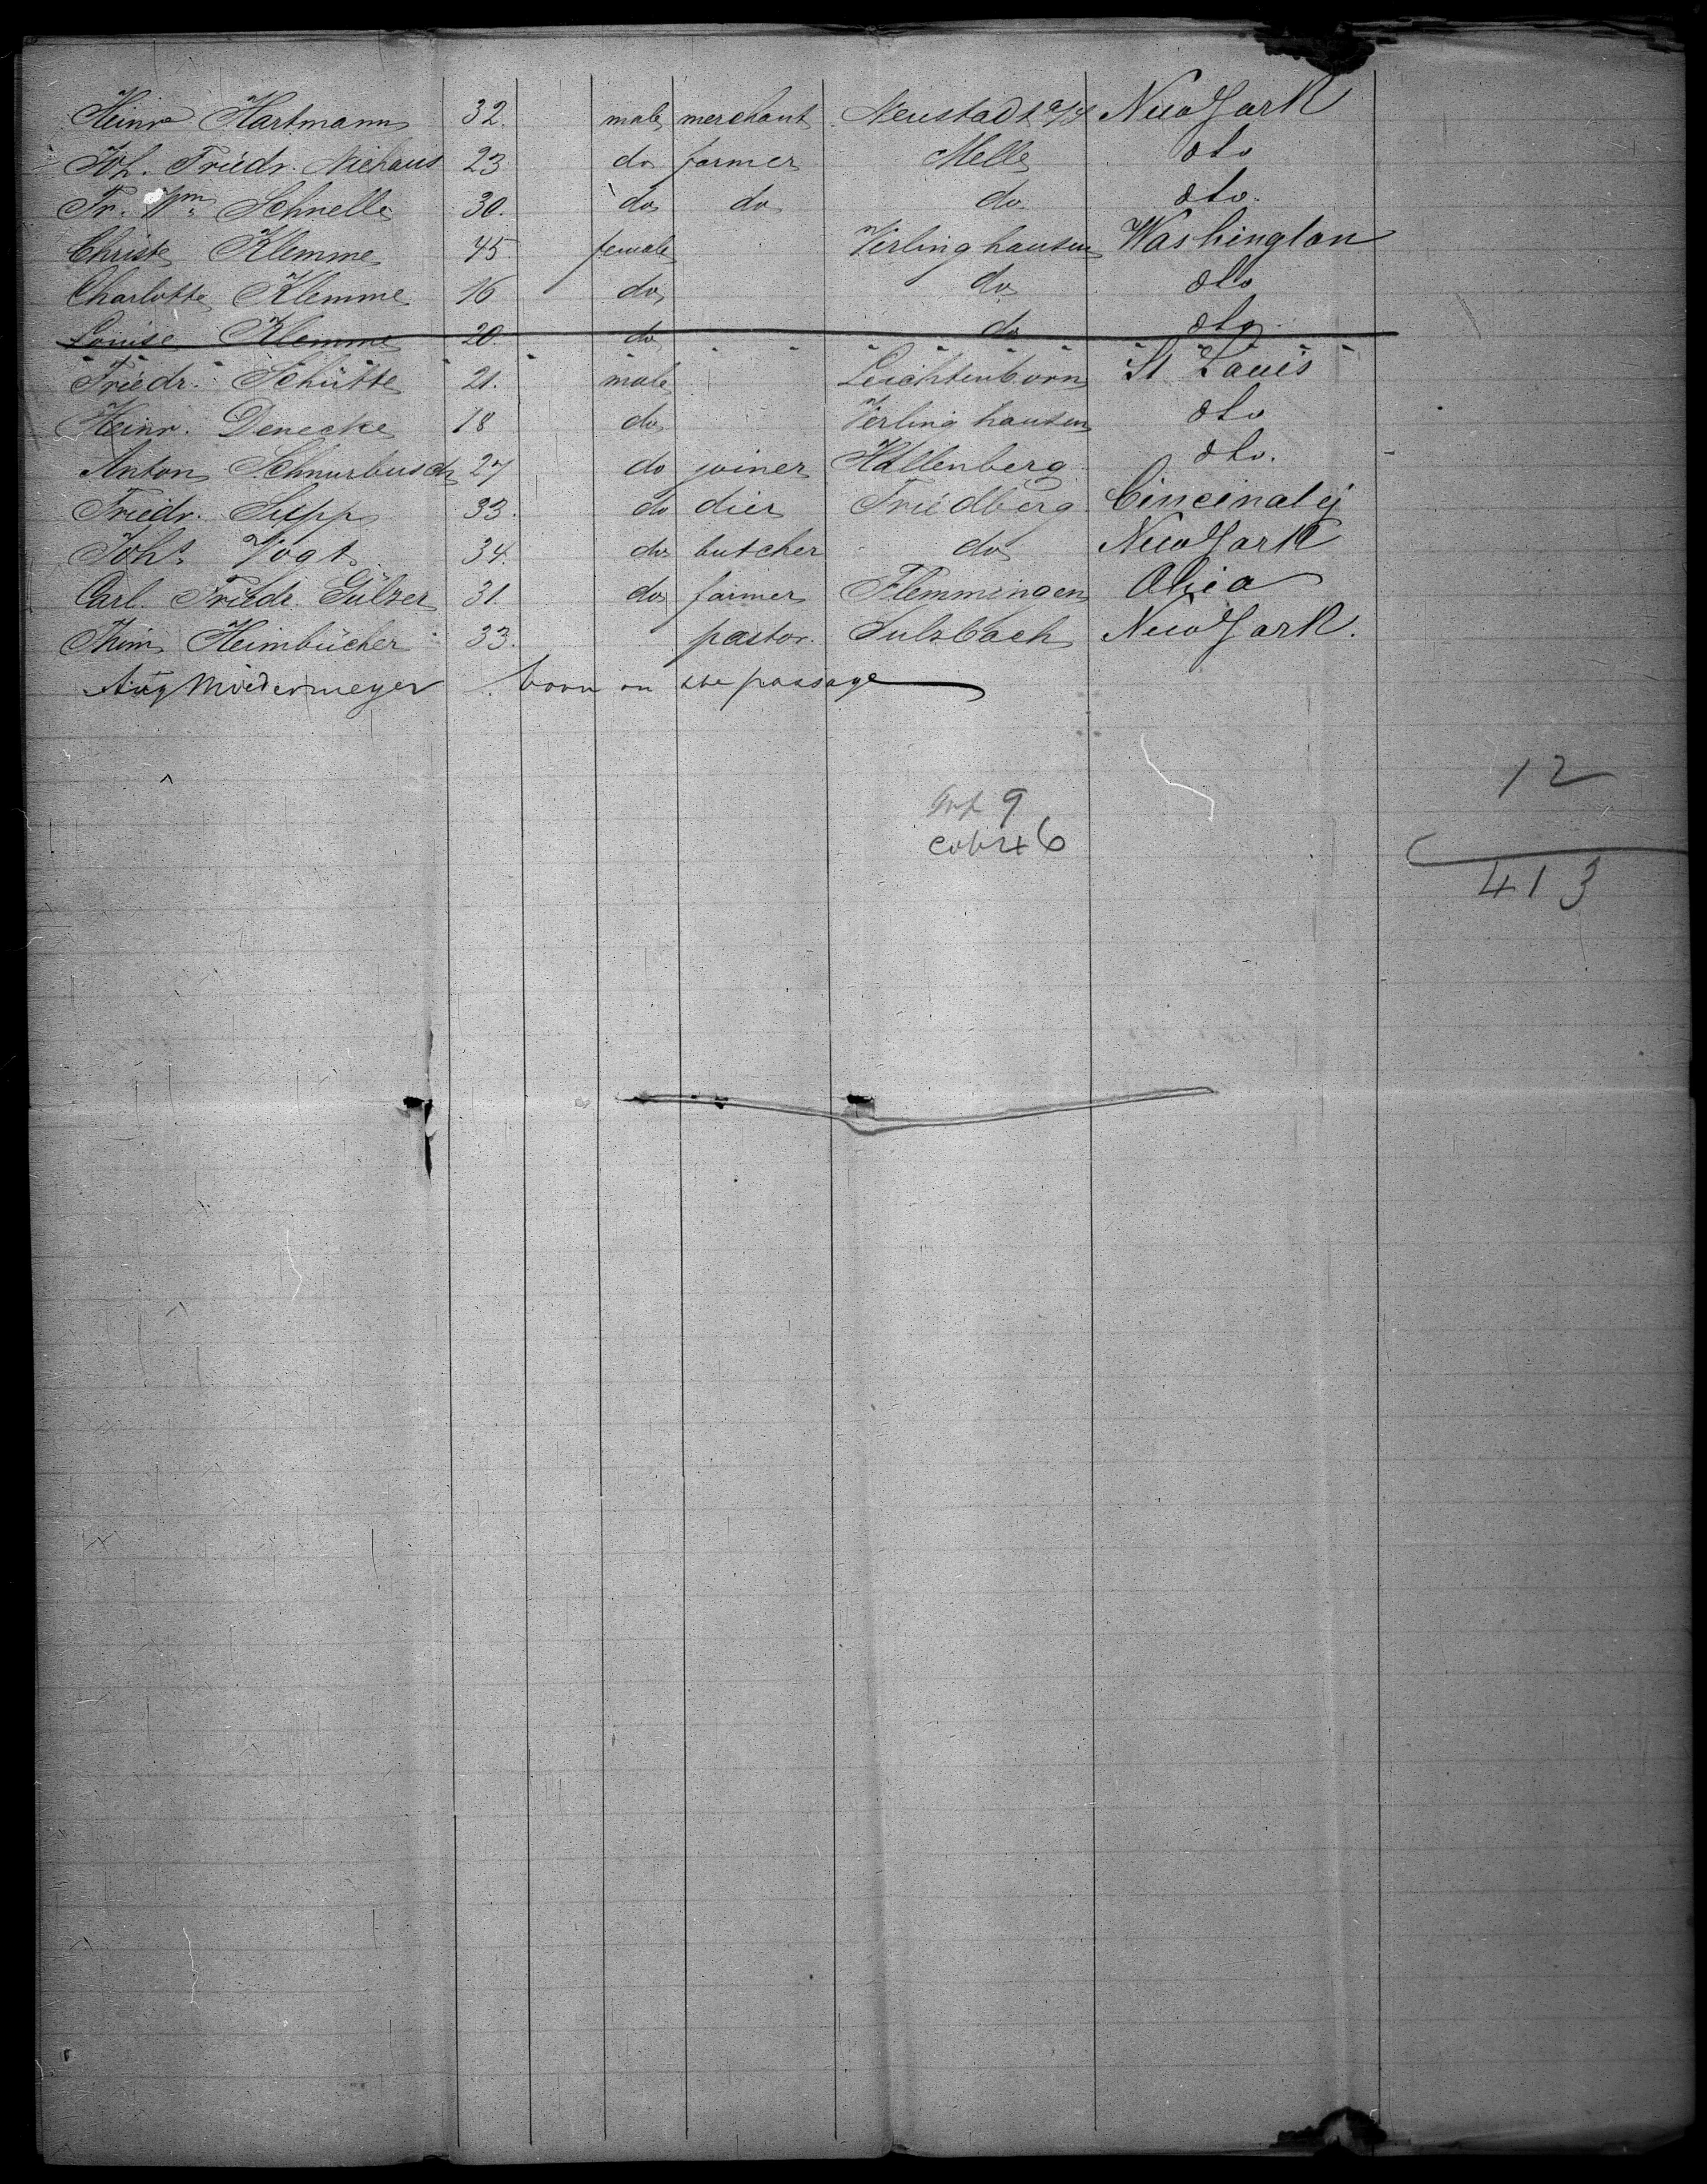 Heinr Hartmann 32. male merchant Neustadt a/H New York
Joh. Friedr. Niehaus 23 do farmer Melle dto
Fr. Wm. Schnelle 30. do do do dto.
Christe Klemme 45. female Verlinghausen Washington
Charlotte Klemme 16 do do dto
Louise Klemme 20 do do dto.
Friedr. Schütte 21. male Leichtenborn St Louis
Heinr. Denecke 18 do Verlinghausen dto
Anton Schnurbusch 27 do joiner Hallenberg dto.
Friedr. Supp 33. do dier Friedberg Cincinatij
Johs Vogt 34. do butcher do New York
Carl. Friedr. Gülzer 31. do farmer Flemmingen Ohio
Thim Heimbücher 33. pastor. Sulzbach New York.
Aug Moedermeyer born on the passage
12
9
6
413